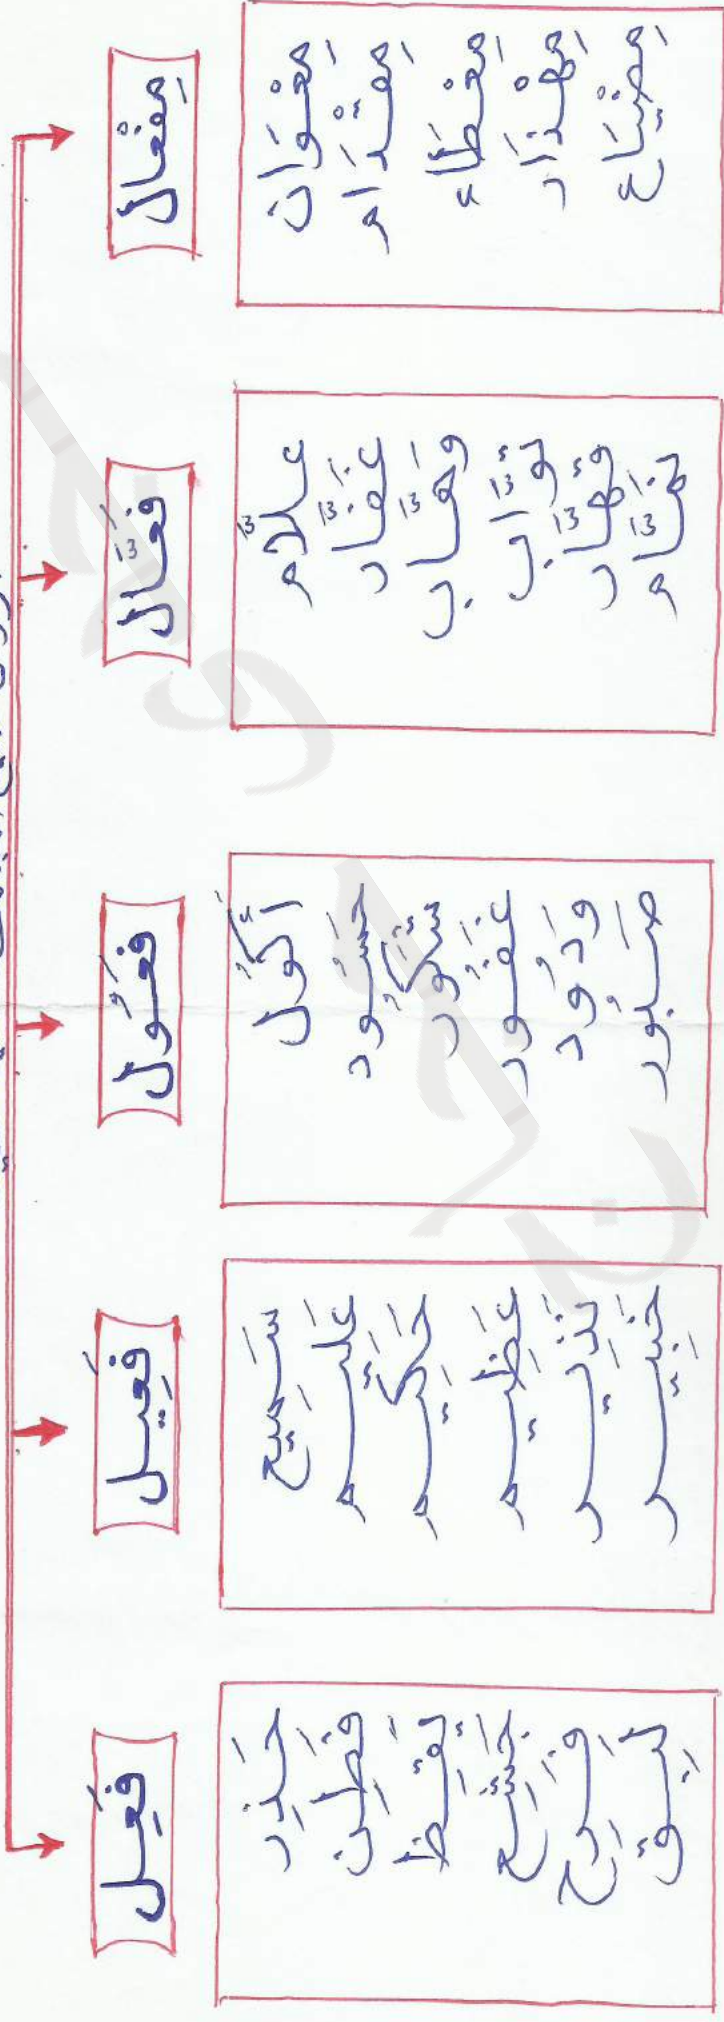 مِفْعَال
مِعْوَان
مِقْدَام
مِعْطَاء
مِهْذَار
مِضْيَاع
فَعَّال
عَلَّام
غَفَّار
وَهَّاب
تَوَّاب
قَهَّار
نَمَّام
فَعُول
أَكُول
حَسُود
شَكُور
غَفُور
وَدُود
صَبُور
فَعِيل
سَمِيع
عَلِيم
حَكِيم
عَظِيم
نَذِير
خَبِير
فَعِل
حَذِر
فَطِن
يَقِظ
جَشِع
فَرِح
لَبِق